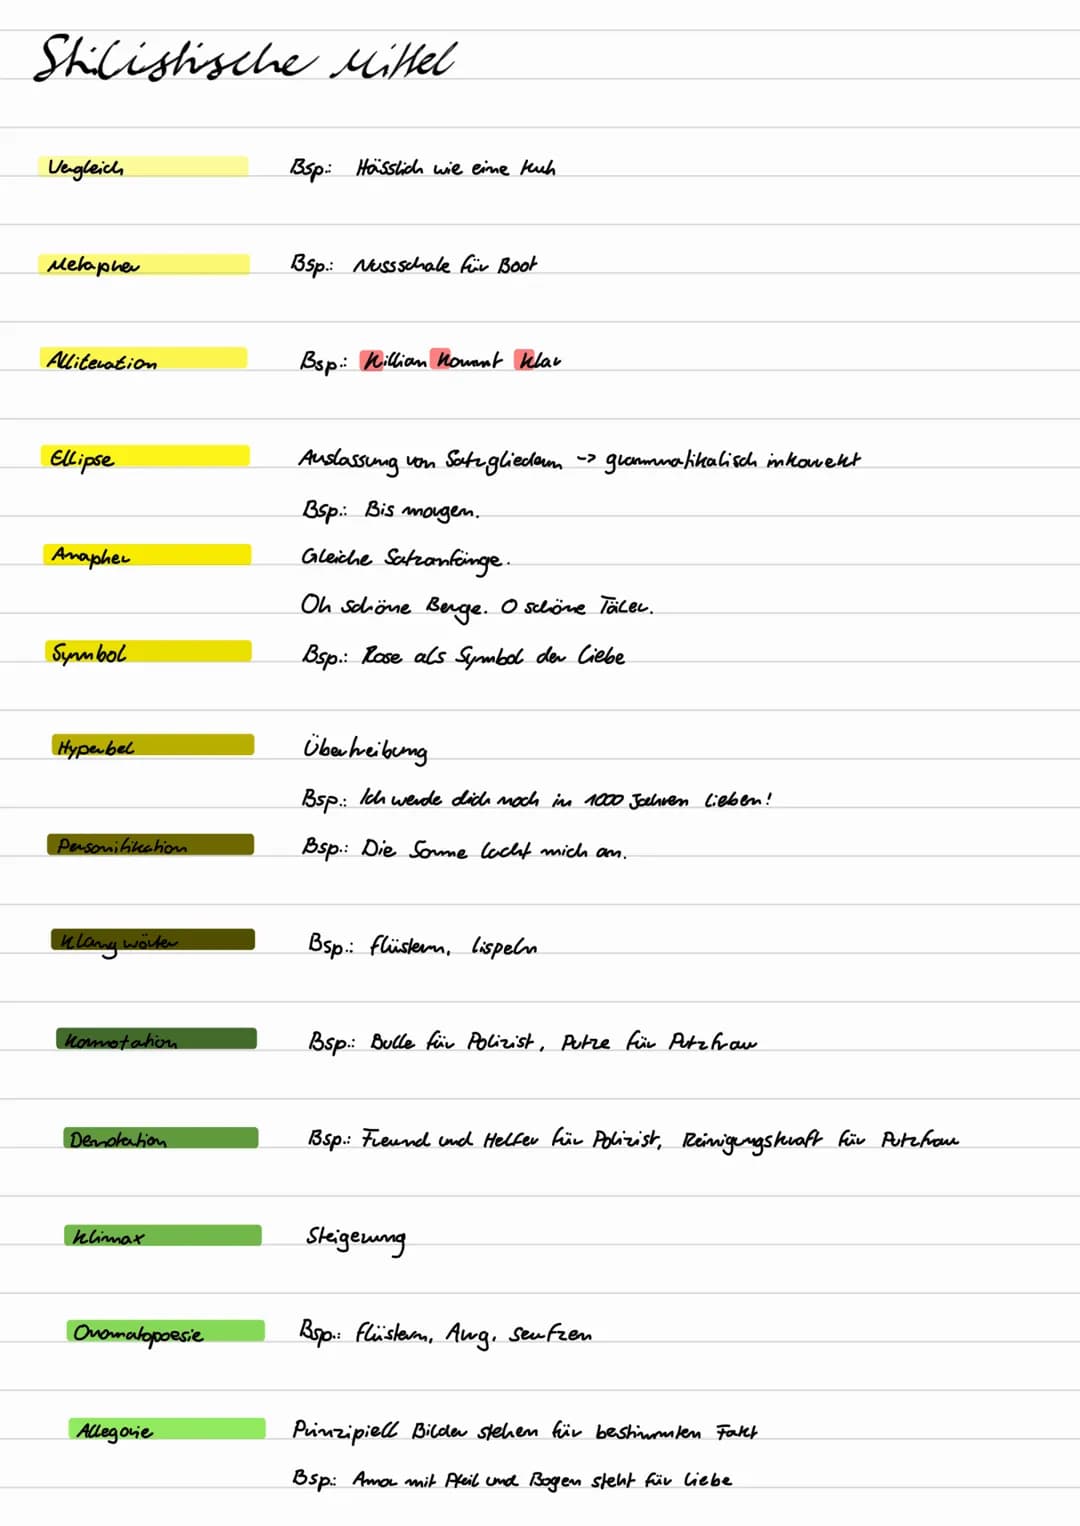 Stilistische Mittel
Vergleich Bsp.: Hässlich wie eine Kuh
Metapher Bsp.: Nussschale für Boot
Alliteration Bsp.: Killian kommt klar
Ellipse Auslassung von Satzgliedern -> grammatikalisch inkorrekt
Bsp.: Bis morgen.
Anapher Gleiche Satzanfänge.
Oh schöne Berge. O schöne Täler.
Symbol Bsp.: Rose als Symbol der Liebe
Hyperbel Übertreibung
Bsp.: Ich werde dich noch in 1000 Jahren lieben!
Personifikation Bsp.: Die Sonne lacht mich an.
Klangwörter Bsp.: flüstern, lispeln
Konnotation Bsp.: Bulle für Polizist, Putze für Putzfrau
Denotation Bsp.: Freund und Helfer für Polizist, Reinigungskraft für Putzfrau
Klimax Steigerung
Onomatopoesie Bsp.: flüstern, seufzen
Allegorie Prinzipiell Bilder stehen für bestimmten Fakt
Bsp.: Amor mit Pfeil und Bogen steht für Liebe